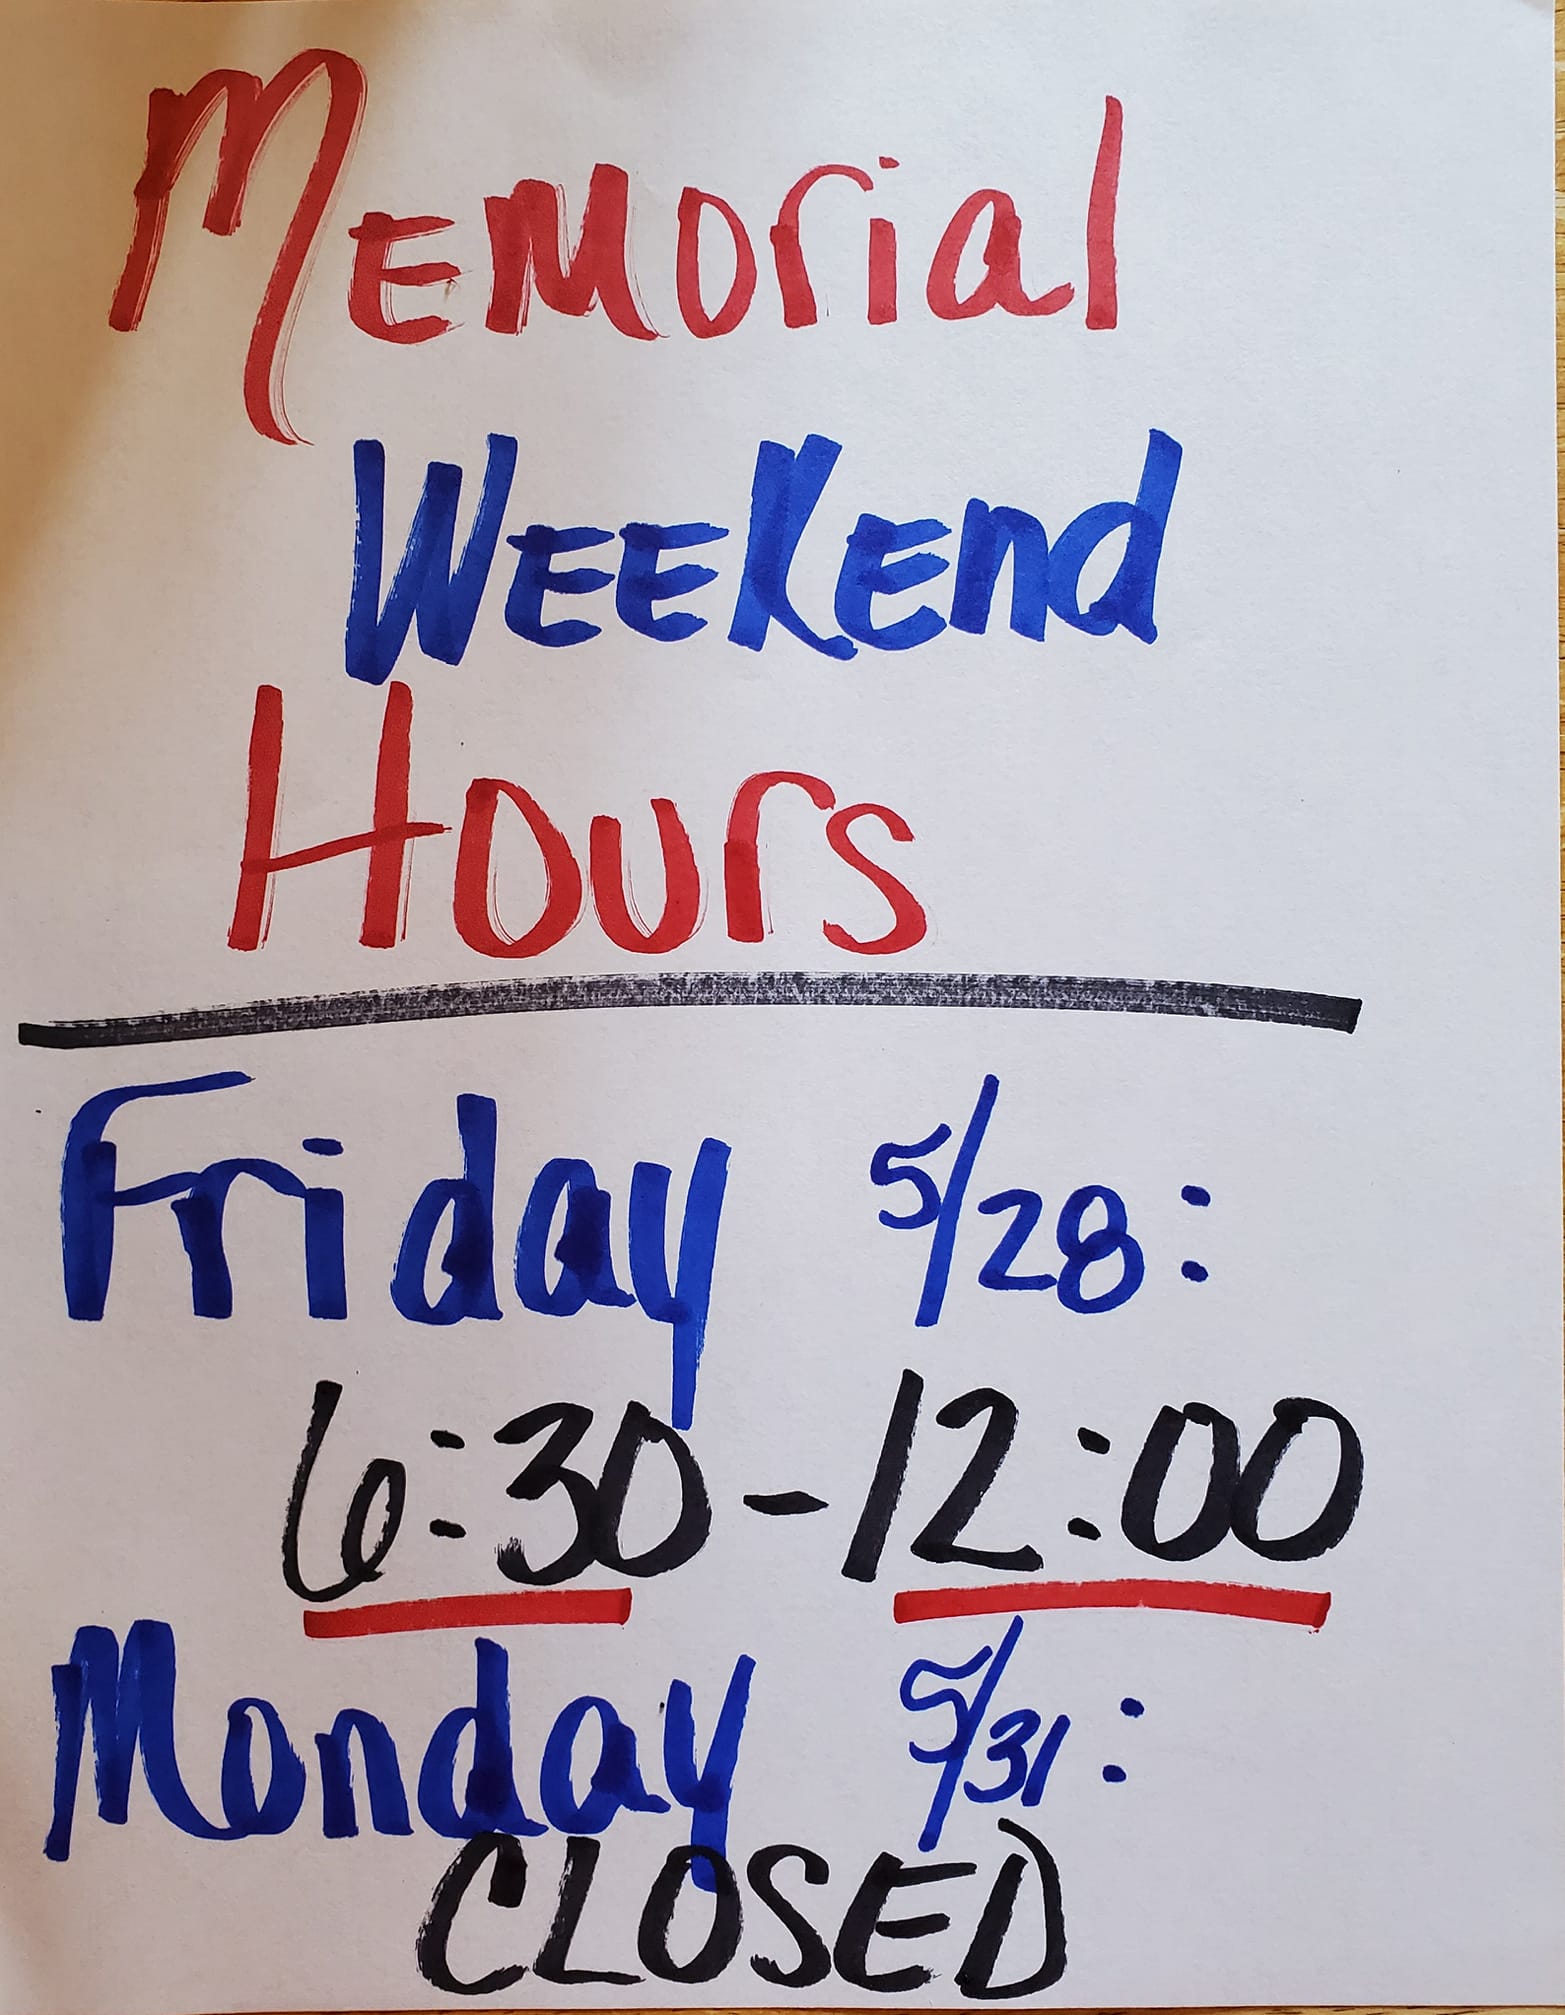 Memorial
Weekend
Hours
Friday 5/28:
6:30-12:00
Monday 5/31:
CLOSED